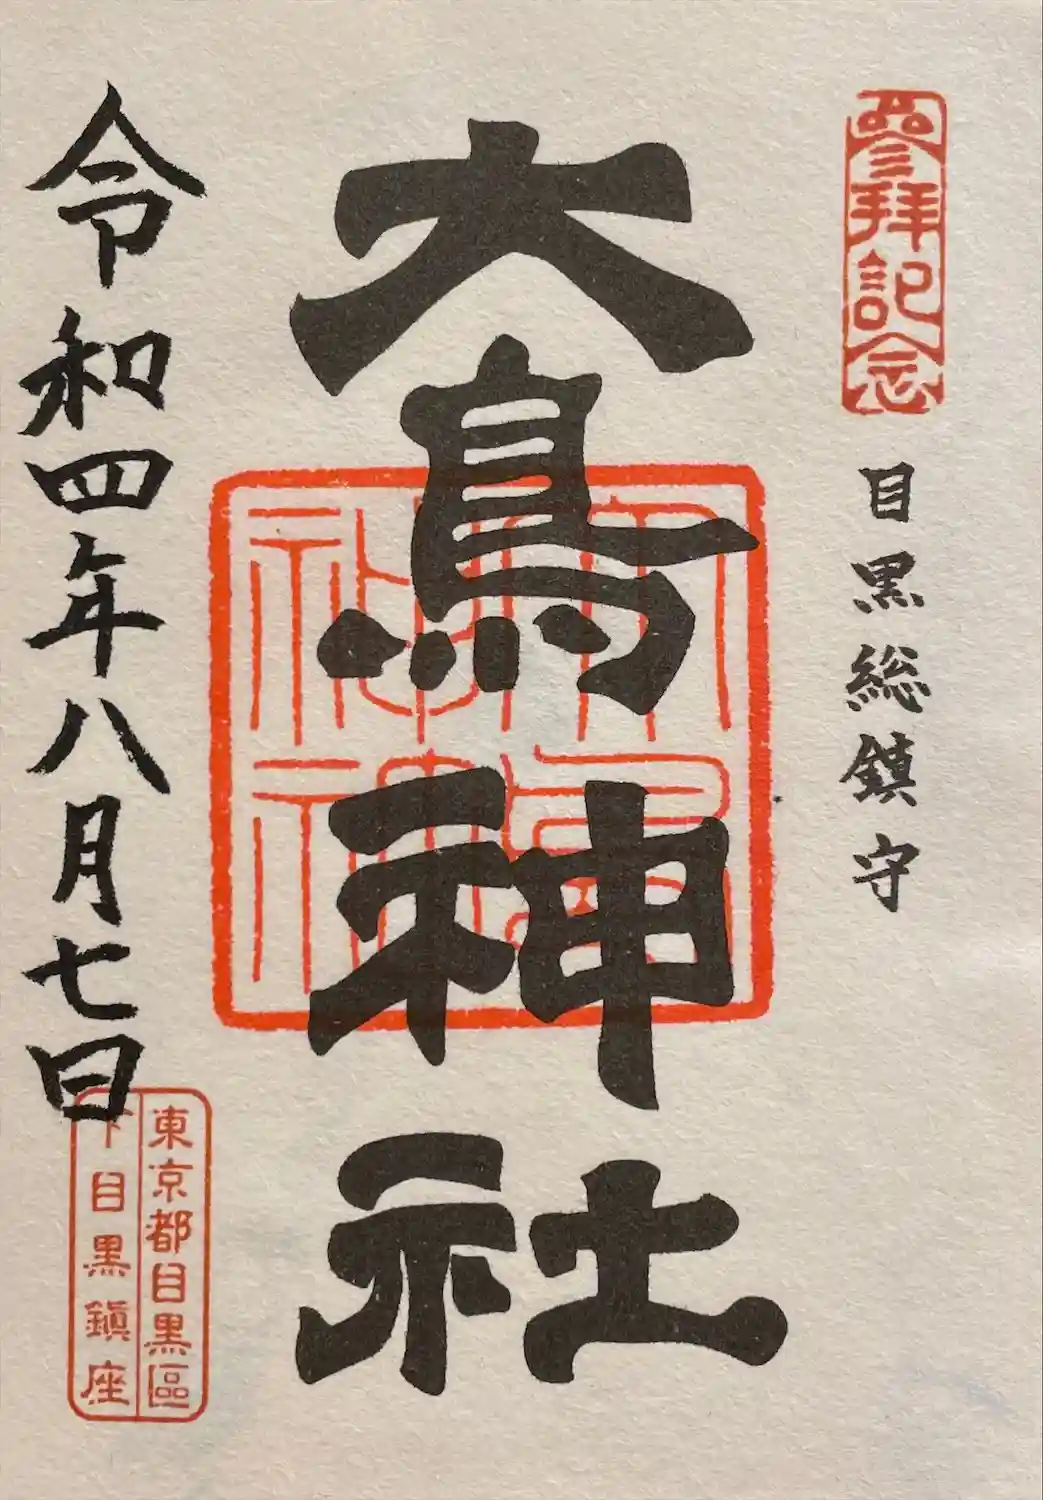 參拜記念
目黒総鎮守
大鳥神社
大鳥神社
令和四年八月七日
東京都目黒區
下目黒鎮座